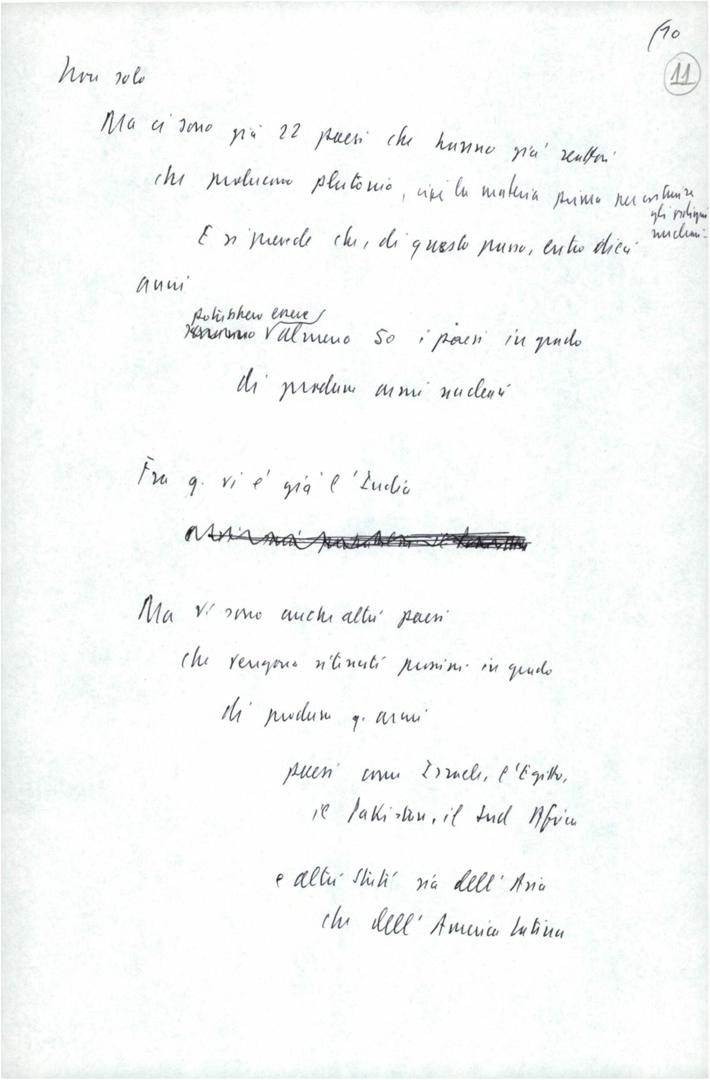 (10
11
Non solo
Ma ci sono già 22 paesi che hanno già reattori
che producono plutonio, cioè la materia prima per costruire
gli ordigni
nucleari.
E si prevede che, di questo passo, entro dieci
anni
potrebbero essere
almeno 50 i paesi in grado
di produrre armi nucleari
Fra q. vi è già l'India
Ma vi sono anche altri paesi
che vengono ritenuti prossimi in grado
di produrre q. armi
paesi come Israele, l'Egitto,
il Pakistan, il Sud Africa
e altri Stati sia dell'Asia
che dell'America Latina